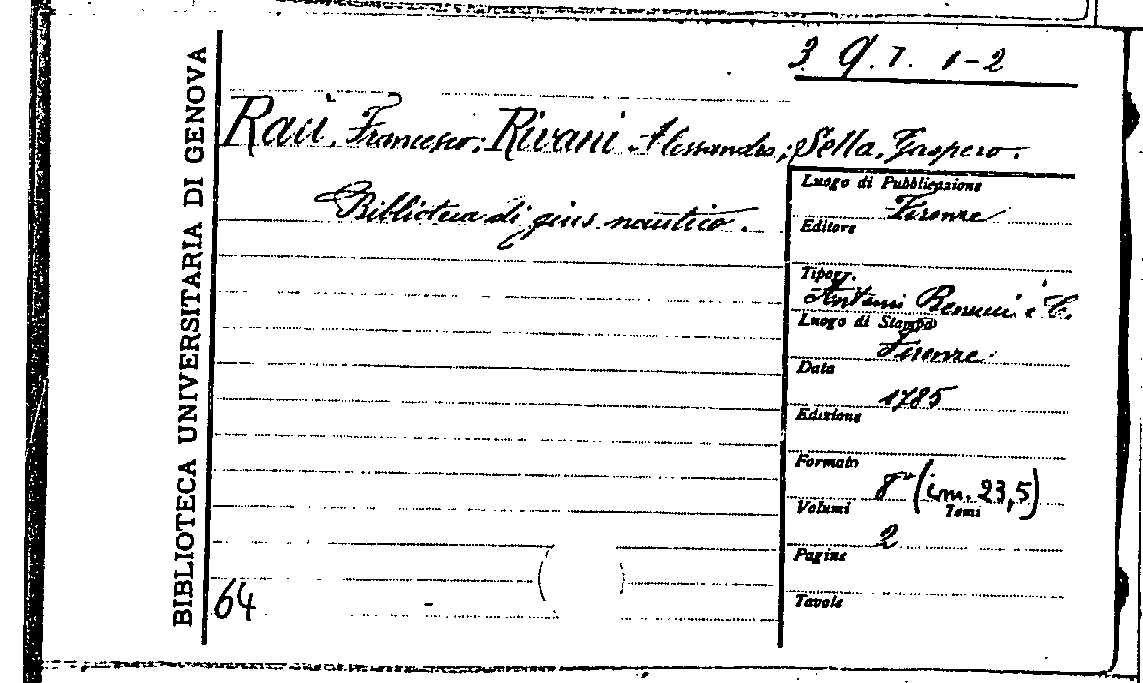 BIBLIOTECA UNIVERSITARIA DI GENOVA
3. Q. I. 1-2
Raù, Francesco; Rivani Alessandro; Sella, Gaspero.
Biblioteca di gius nautico.
Luogo di Pubblicazione
Firenze
Editore
Tipogr.
Benucci e C.
Luogo di Stampa
Firenze
Data
1785
Edizione
Formato
8° (cm. 23,5)
Volumi Tomi
2
Pagine
Tavole
64